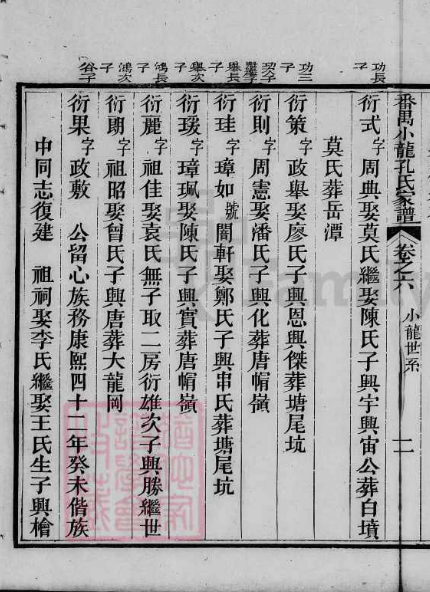 番禺小龍孔氏家譜 卷之六 小龍世系 二
功長子
衍式字周典娶莫氏繼娶陳氏子興宇興宙公葬白墳
莫氏葬岳潭
功三子
衍策字政舉娶廖氏子興恩興傑葬塘尾坑
衍則字周憲娶潘氏子興化葬唐帽嶺
舉長子
衍珪字璋如號闇軒娶鄭氏子興串氏葬塘尾坑
舉次子
衍瑗字璋珮娶陳氏子興賓葬唐帽嶺
鴻長子
衍麗字祖佳娶袁氏無子取二房衍雄次子興勝繼世
鴻次子
衍朗字祖昭娶曾氏子興唐葬大龍岡
衍果字政敷 公留心族務康熙四十二年癸未偕族
中同志復建 祖祠娶李氏繼娶王氏生子興檜